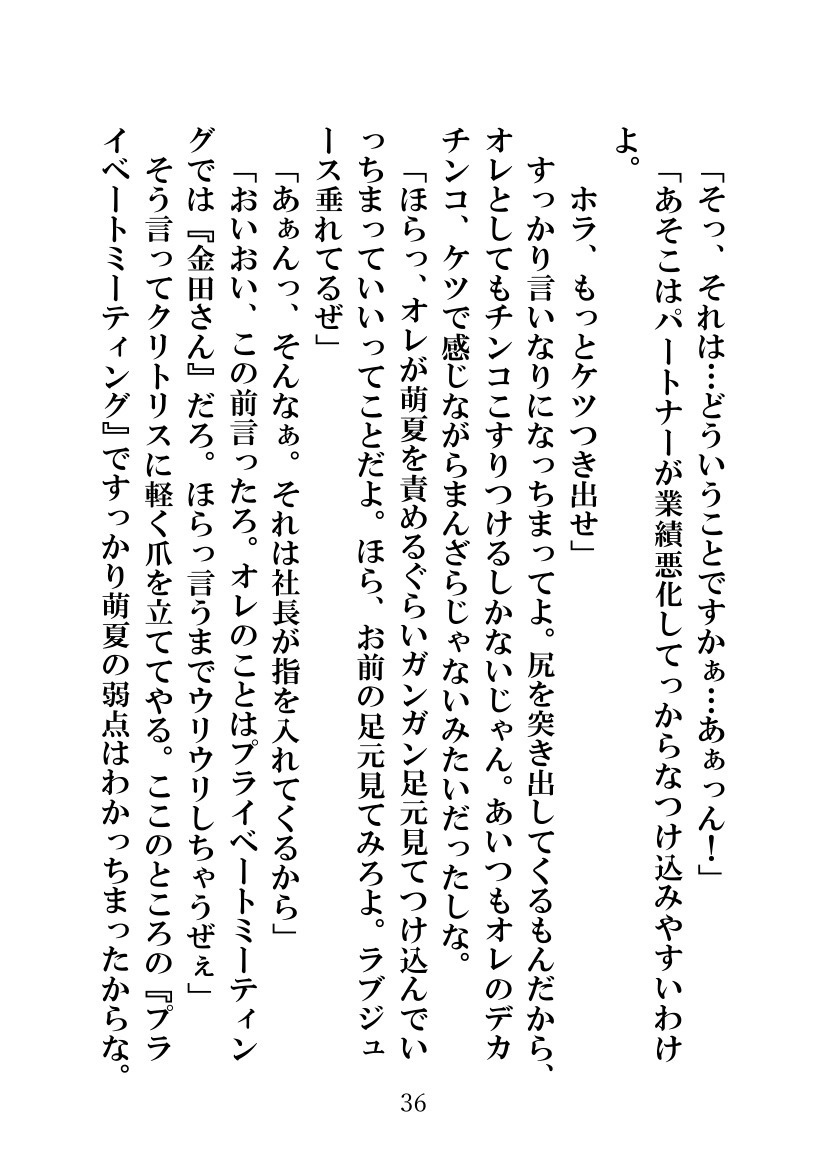 「そっ、それは…どういうことですかぁ…あぁっん！」
「あそこはパートナーが業績悪化してっからなつけ込みやすいわけ
よ。
ホラ、もっとケツつき出せ」
すっかり言いなりになっちまってよ。尻を突き出してくるもんだから、
オレとしてもチンコこすりつけるしかないじゃん。あいつもオレのデカ
チンコ、ケツで感じながらまんざらじゃないみたいだったしな。
「ほらっ、オレが萌夏を責めるぐらいガンガン足元見てつけ込んでい
っちまっていいってことだよ。ほら、お前の足元見てみろよ。ラブジュ
ース垂れてるぜ」
「あぁんっ、そんなぁ。それは社長が指を入れてくるから」
「おいおい、この前言ったろ。オレのことはプライベートミーティン
グでは『金田さん』だろ。ほらっ言うまでウリウリしちゃうぜぇ」
そう言ってクリトリスに軽く爪を立ててやる。ここのところの『プラ
イベートミーティング』ですっかり萌夏の弱点はわかっちまったからな。
36